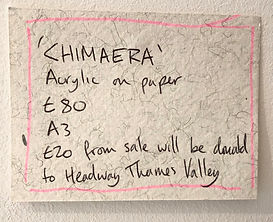 'CHIMAERA'
Acrylic on paper
£80
A3
£20 from sale will be donated
to Headway Thames Valley